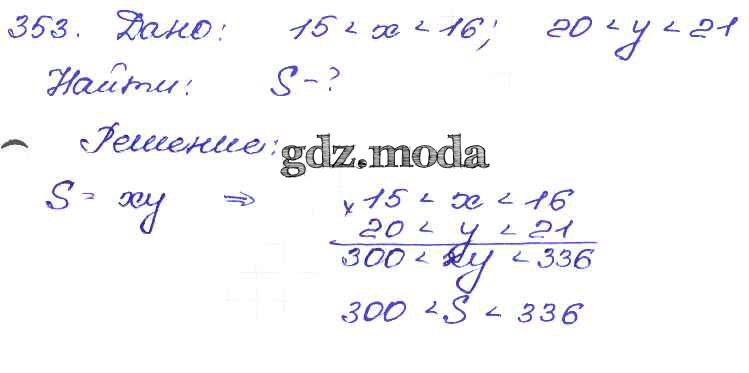 353. Дано: 15 < x < 16; 20 < y < 21
Найти: S - ?
Решение:
gdz.moda
S = xy ⇒ × 15 < x < 16
20 < y < 21
300 < xy < 336
300 < S < 336